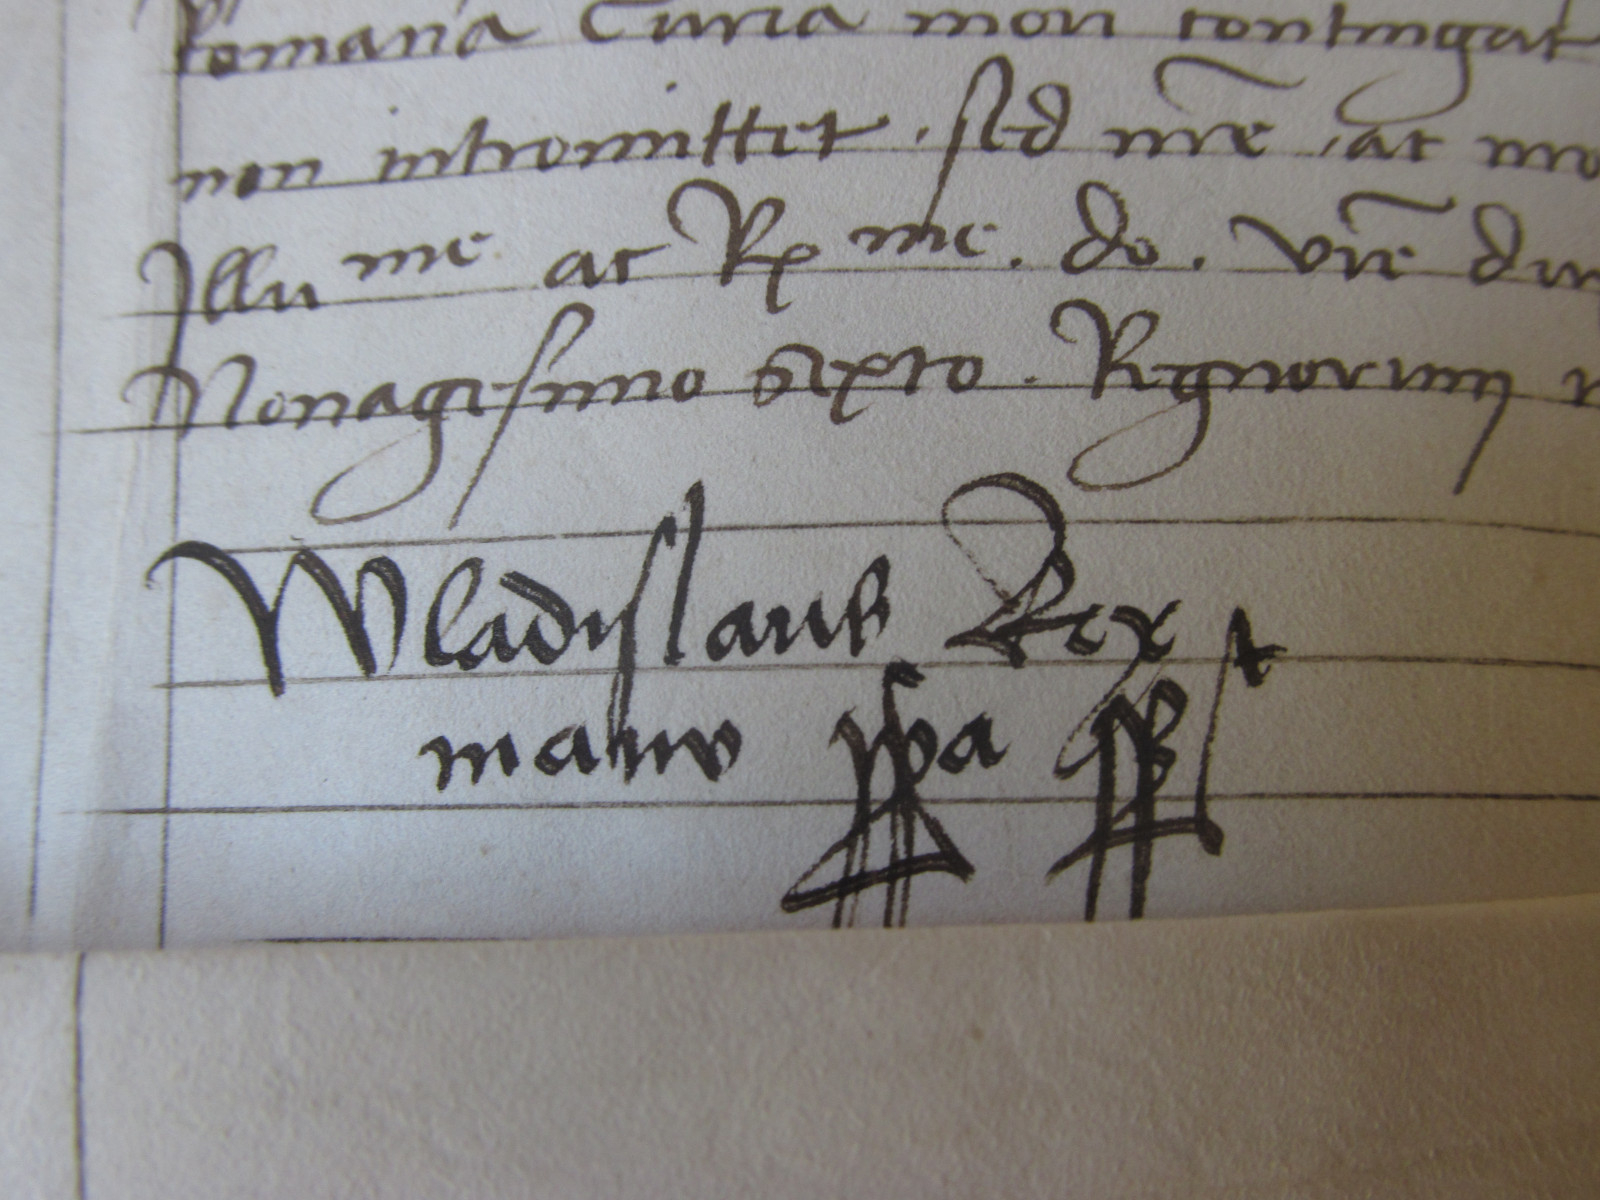 Romana Curia non contingat
non intromittet . sed nre . at
Illu me ac Rx me . do . vre
Nonagesimo sexto . Regnorum
Wladislaus Rex
manu ppa